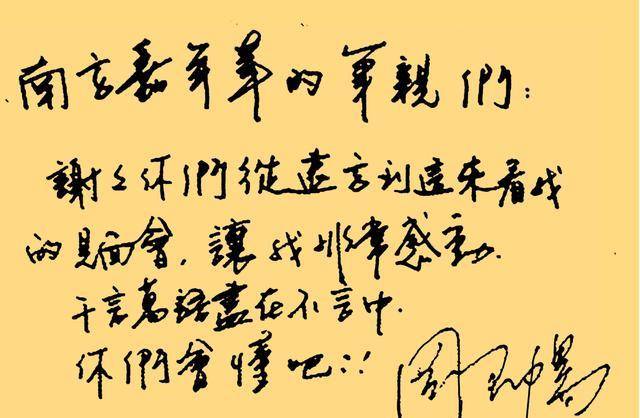 南京嘉年華的親們：
謝々你們從遠方到這來看我
的見面會，讓我非常感動.
千言萬語盡在不言中.
你們會懂吧!!
周